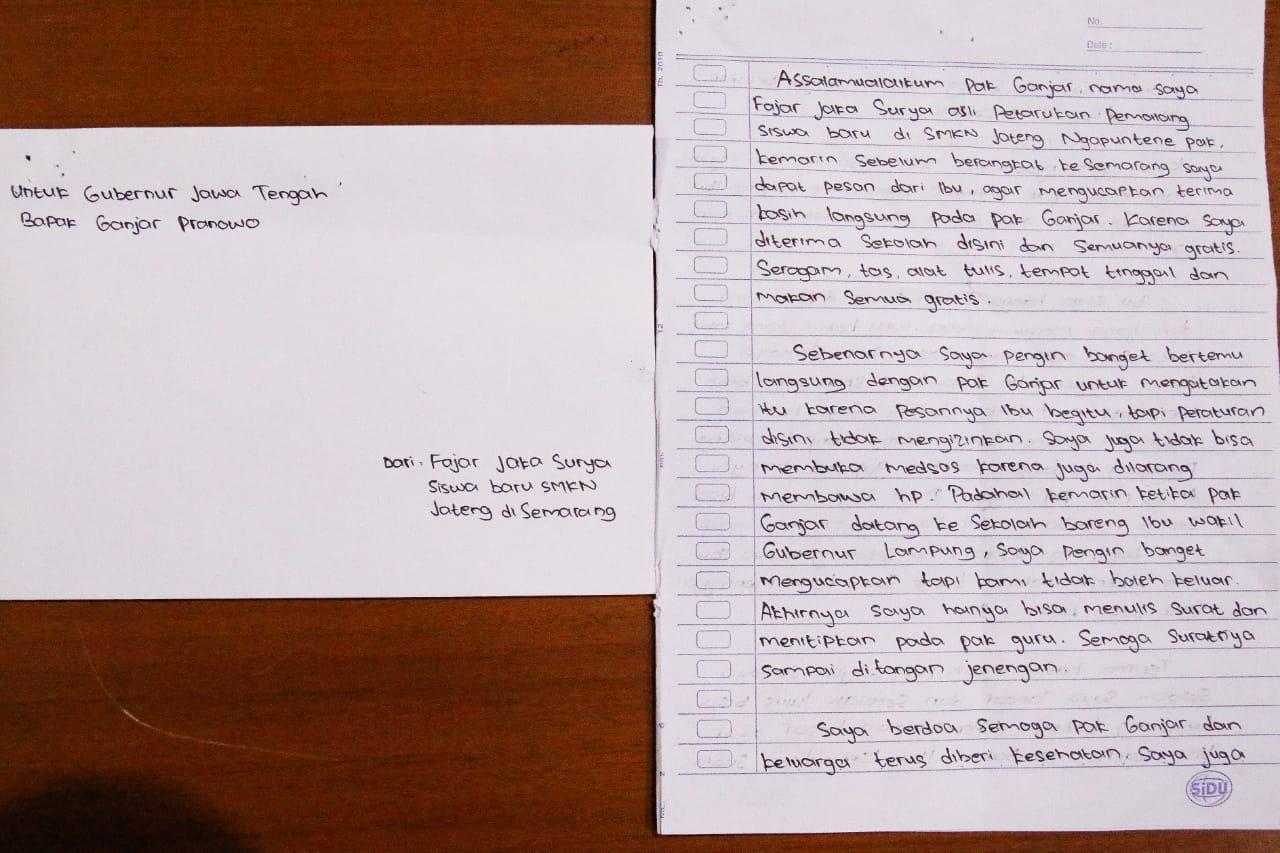 Untuk Gubernur Jawa Tengah
Bapak Ganjar Pranowo
Dari : Fajar Jaka Surya
Siswa baru SMKN
Jateng di Semarang
No.
Date :
Assalamualaikum Pak Ganjar, nama saya
Fajar Jaka Surya asli Petarukan Pemalang
siswa baru di SMKN Jateng Ngapuntene pak,
kemarin sebelum berangkat ke Semarang saya
dapat pesan dari Ibu, agar mengucapkan terima
kasih langsung pada pak Ganjar. Karena saya
diterima sekolah disini dan semuanya gratis.
Seragam, tas, alat tulis, tempat tinggal dan
makan semua gratis.
Sebenarnya saya pengin banget bertemu
langsung dengan pak Ganjar untuk mengatakan
itu karena pesannya Ibu begitu, tapi peraturan
disini tidak mengizinkan. Saya juga tidak bisa
membuka medsos karena juga dilarang
membawa hp. Padahal kemarin ketika pak
Ganjar datang ke sekolah bareng Ibu wakil
Gubernur Lampung, saya pengin banget
mengucapkan tapi kami tidak boleh keluar.
Akhirnya saya hanya bisa menulis surat dan
menitipkan pada pak guru. Semoga suratnya
sampai di tangan jenengan.
Saya berdoa semoga pak Ganjar dan
keluarga terus diberi kesehatan. Saya juga
SiDU